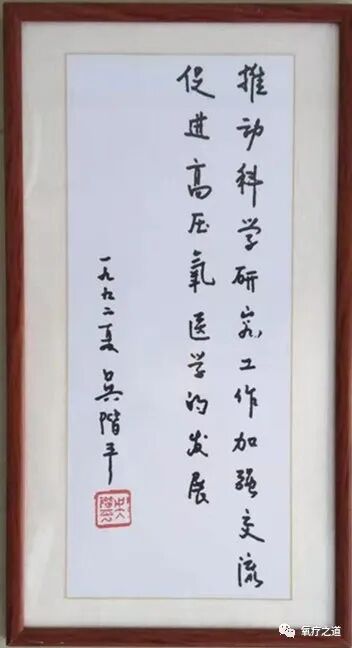 推动科学研究工作加强交流
促进高压氧医学的发展
一九九二夏 吴階平
氧疗之道